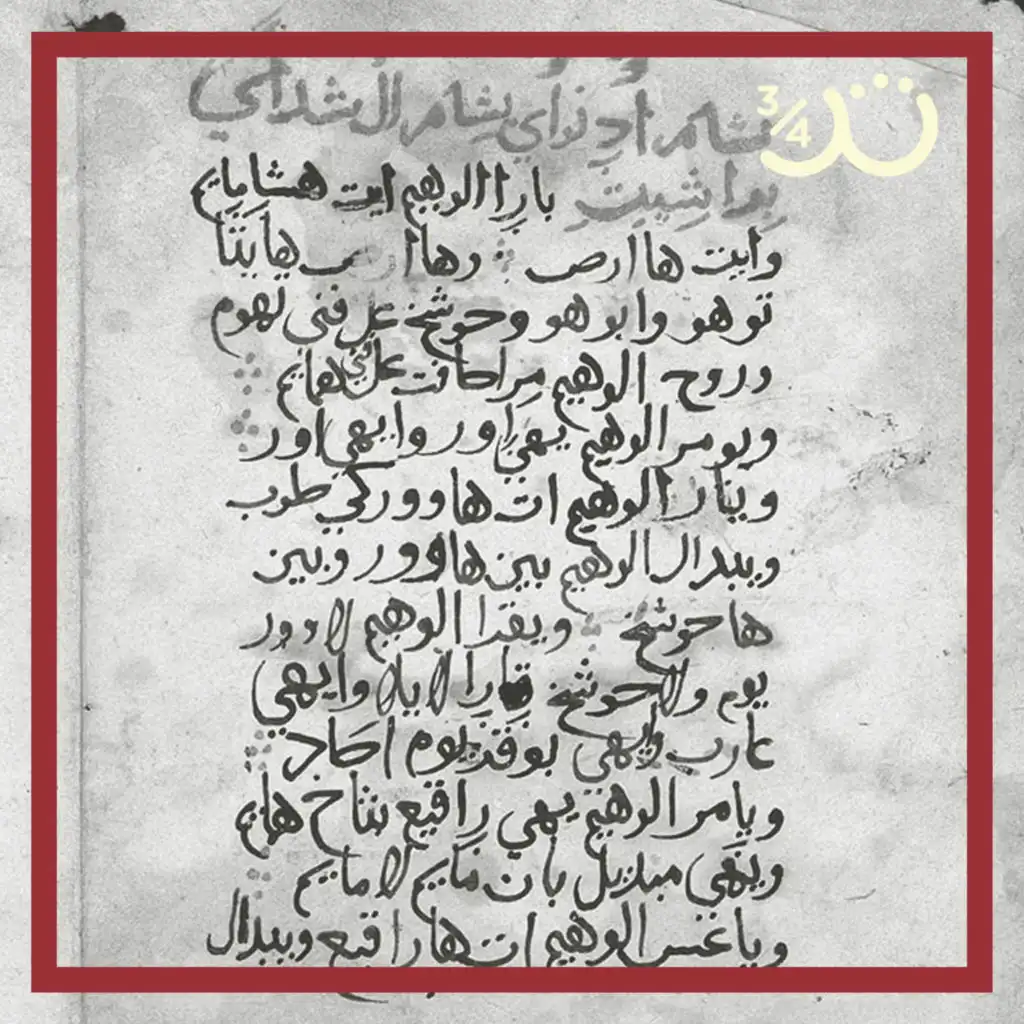 بشلم ادنواي بشلم ال شداي
براشيت بارا الوهيم ايت هشامايم
وايت ها ارص وها ارص هايتا
توهو وابوهو وحوشخ عل فنى تهوم
وروح الوهيم مراكافت عل فني همايم
ويومر الوهيم يهي اور وايهي اور
وينارا الوهيم ات هاوور كي طوب
ويبدال الوهيم بين هاوور وبين
هاحوشخ ويقرا الوهيم لاوور
يوم ولاحوشخ قارا لايلا وايهي
عارب وايهي بوقر يوم اكاد
ويامر الوهيم يهي راقيع بتاخ همايم
ويهي مبديل بان مايم لامايم
وياعس الوهيم ات هاراقيع ويبدال